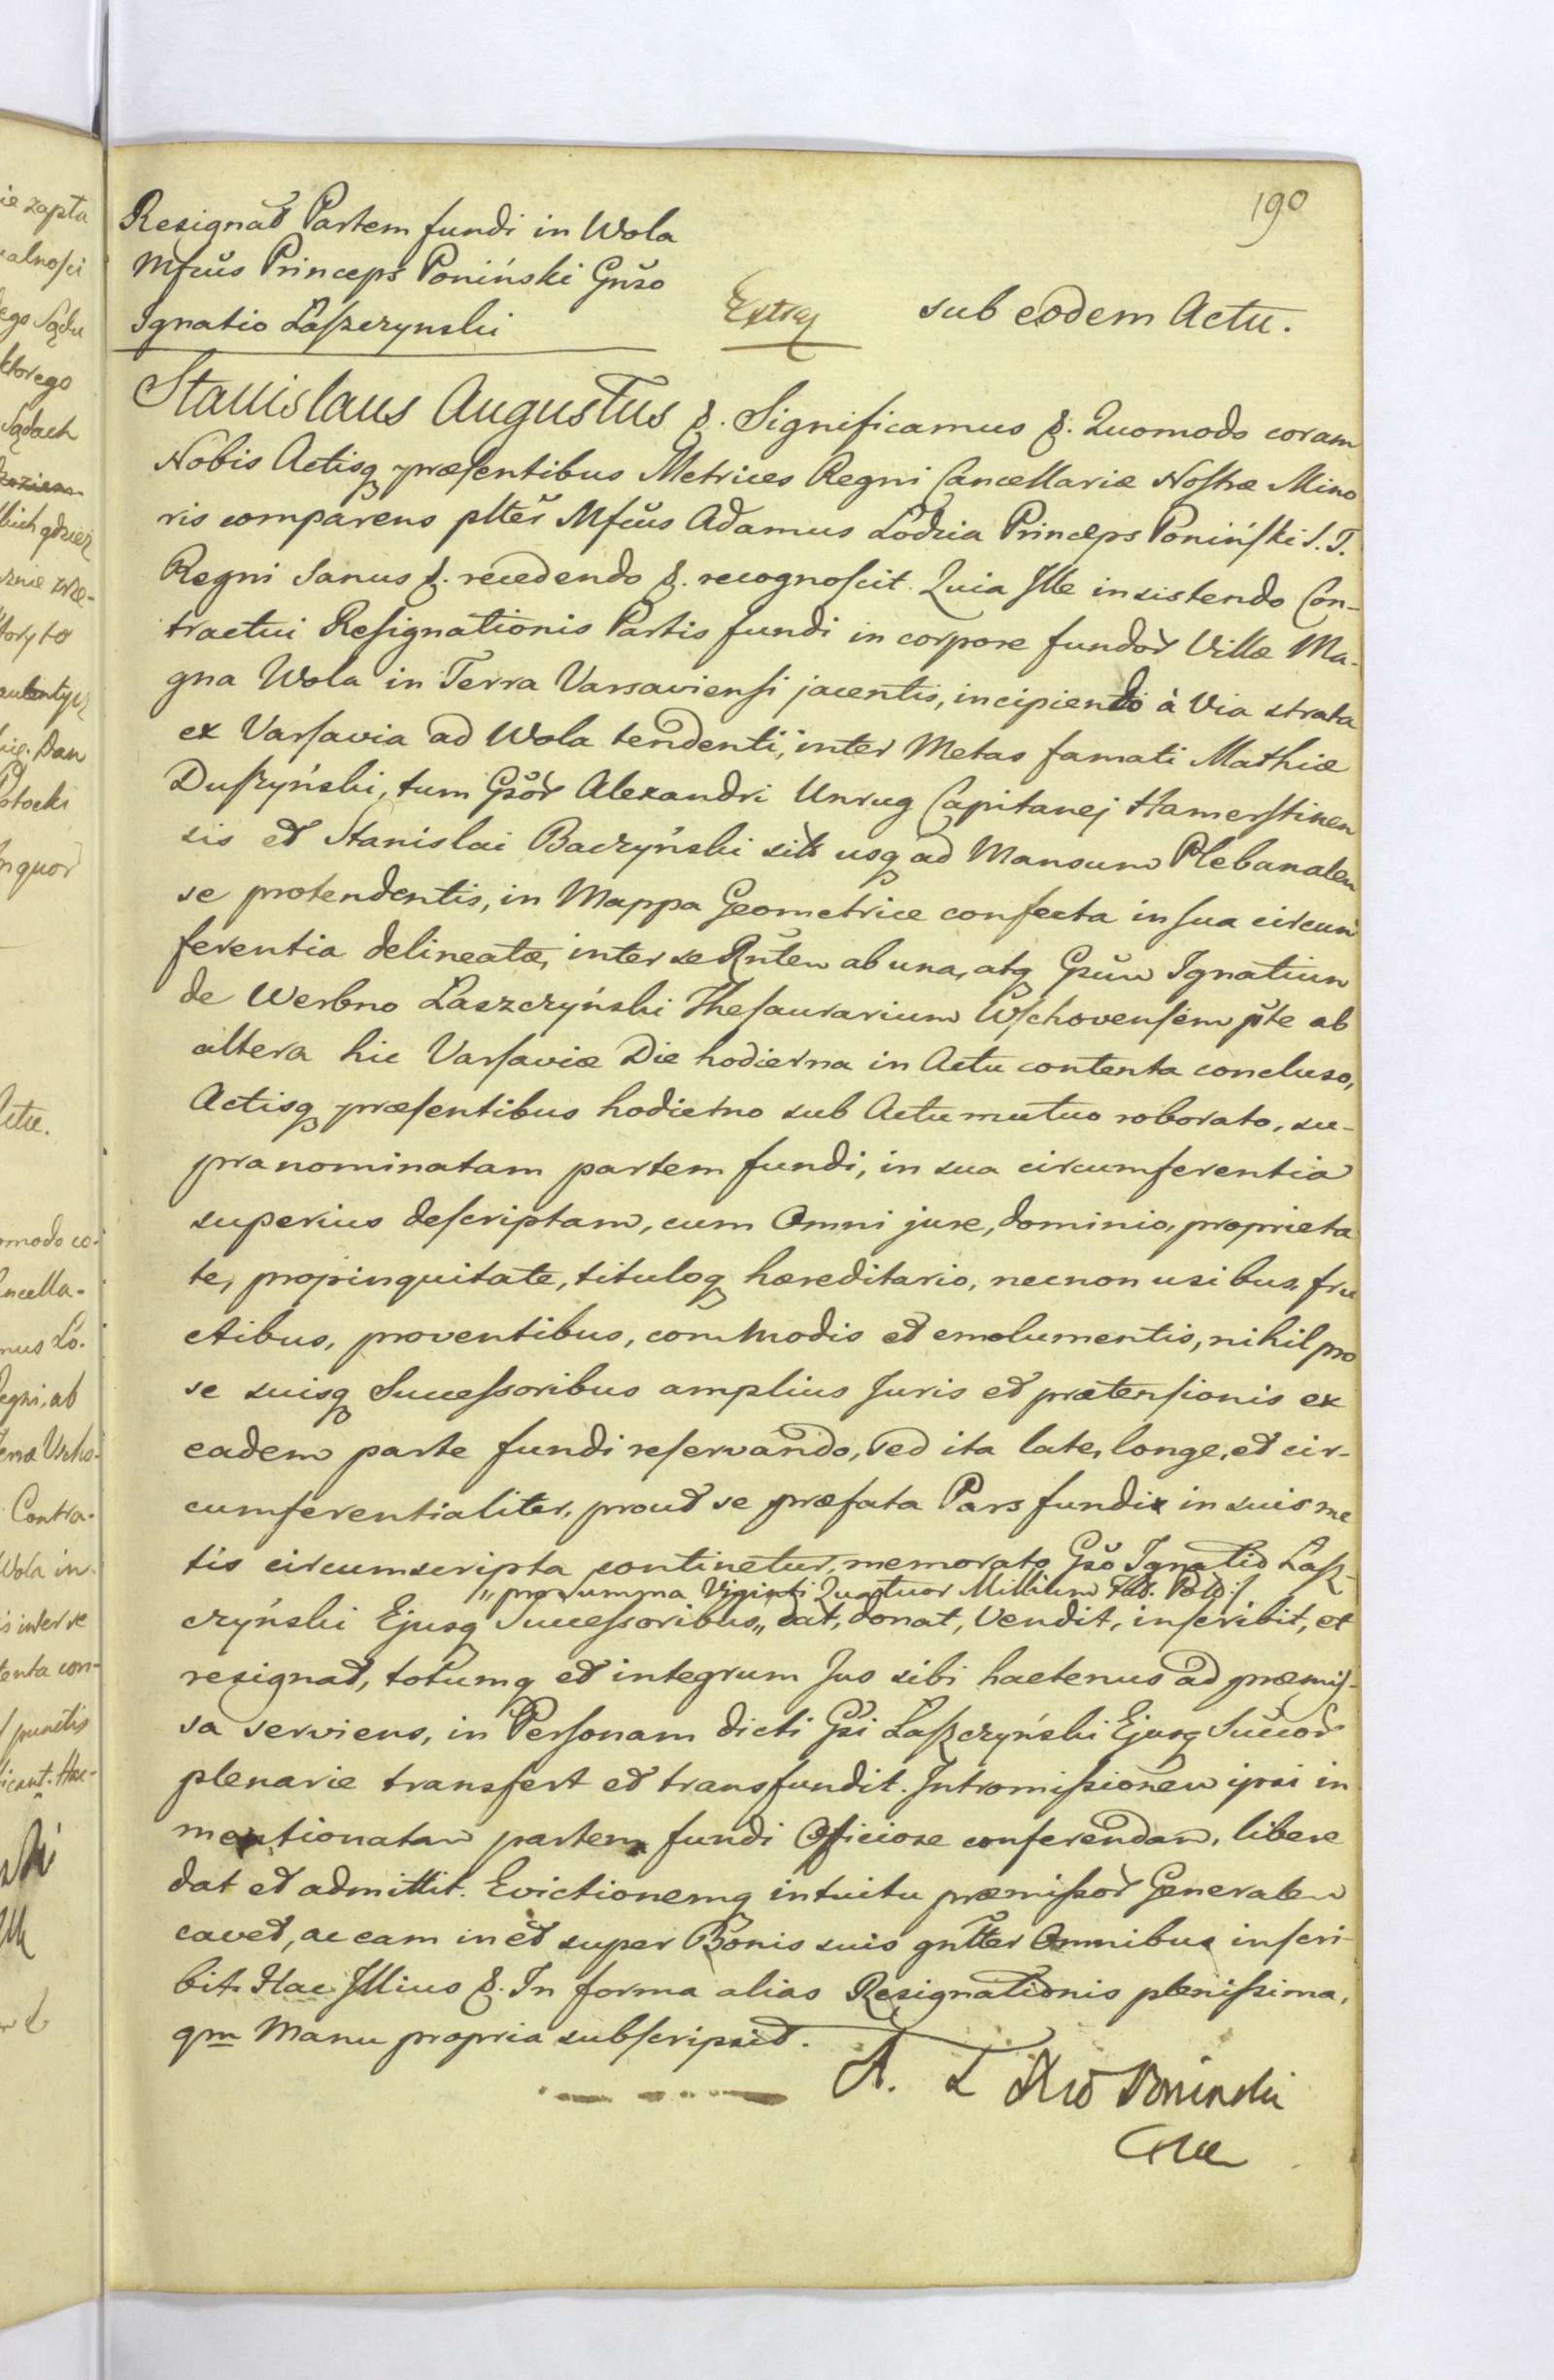 190
Resignat Partem fundi in Wola
Mfcus Princeps Poniński Gnso
Ignatio Łaſzczynski
Extra
sub eodem Actu.
Stanislaus Augustus &. Significamus &. Quomodo coram
Nobis Actisq præſentibus Metrices Regni Cancellariæ Noſtræ Mino
ris comparens plter Mfcus Adamus Lodzia Princeps Poninſki S. T.
Regni Sanus &. recedendo &. recognoſcit. Quia Ille insistendo Con-
tractui Reſignationis Partis fundi in corpore fundor Villæ Ma-
gna Wola in Terra Varsavienſi jacentis, incipiendo à Via strata
ex Varſavia ad Wola tendenti, inter Metas famati Mathiæ
Duſzyński, tum Gsor Alexandri Unrug Capitanej Hamerſtinen
sis et Stanislai Baczyński sit usq ad Mansum Plebanalem
se protendentis, in Mappa Geometrice confecta in ſua circum
ferentia delineatæ, inter se Rntem ab una, atq Gsum Ignatium
de Werbno Łaszczyński Theſaurarium Wſchovenſem pte ab
altera hic Varſaviæ Die hodierna in Actu contenta concluso,
Actisq præſentibus hodierno sub Actu mutuo roborato, su-
pranominatam partem fundi, in sua circumferentia
superius deſcriptam, cum Omni jure, dominio, proprieta
te, propinquitate, tituloq hæreditario, necnon usibus, fru
ctibus, proventibus, commodis et emolumentis, nihil pro
se suisq Succeſſoribus amplius Juris et prætenſionis ex
eadem parte fundi reſervando, sed ita late, longe, et cir-
cumferentialiter, prout se præfata Pars fundi in suis me
tis circumscripta continetur, memorato Gso Ignatio Łaſz-
„pro summa Viginti Quatuor Millium Flor. Pol:/
czyński Ejusq Succeſſoribus„ dat, donat, Vendit, inſcribit, et
resignat, totumq et integrum Jus sibi hactenus ad præmiſ-
sa serviens, in Perſonam dicti Gsi Łaſzczyński Ejusq Succor
plenarie transfert et transfundit. Intromiſsionem ipsi in
mentionatam partem fundi Officiose conferendam, libere
dat et admittit. Evictionemq intuitu præmiſsor Generalem
cavet, ac eam in et super Bonis suis gnlter Omnibus inſcri-
bit. Hac Illius &. In forma alias Resignationis pleniſsima,
qm Manu propria subſcripsit.
A. Ł Poninski